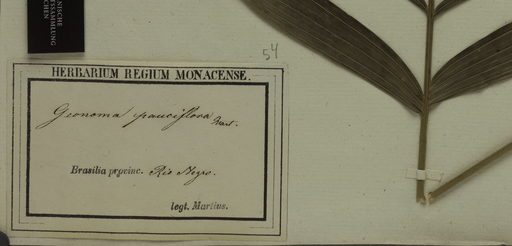 NISCHE
TSSAMMLUNG
NCHEN
54
HERBARIUM REGIUM MONACENSE.
Geonoma pauciflora Mart.
Brasilia provinc. Rio Negro.
legt. Martius.